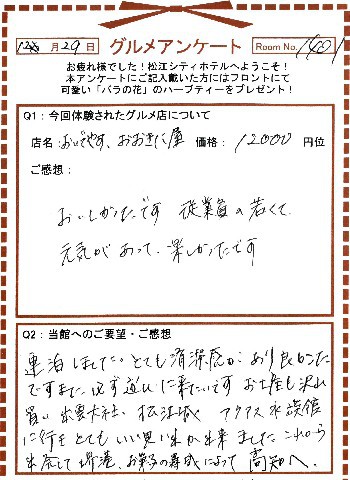 12月29日 グルメアンケート Room No. 1401
お疲れ様でした！松江シティホテルへようこそ！
本アンケートにご記入戴いた方にはフロントにて
可愛い「バラの花」のハーブティーをプレゼント！
Q1：今回体験されたグルメ店について
店名：おいでやす、おおきに屋 価格：12000 円位
ご感想：
おいしかったです 従業員の若くて
元気があって、楽しかったです
Q2：当館へのご要望・ご感想
連泊しました。とても清潔感があり良かった
ですまた必ず遊びに来たいです お土産も沢山
買い 出雲大社、松江城 アクアス水族館
に行き とても いい思い出が出来ました これから
出発して 境港、お菓子の寿城によって 高知へ。